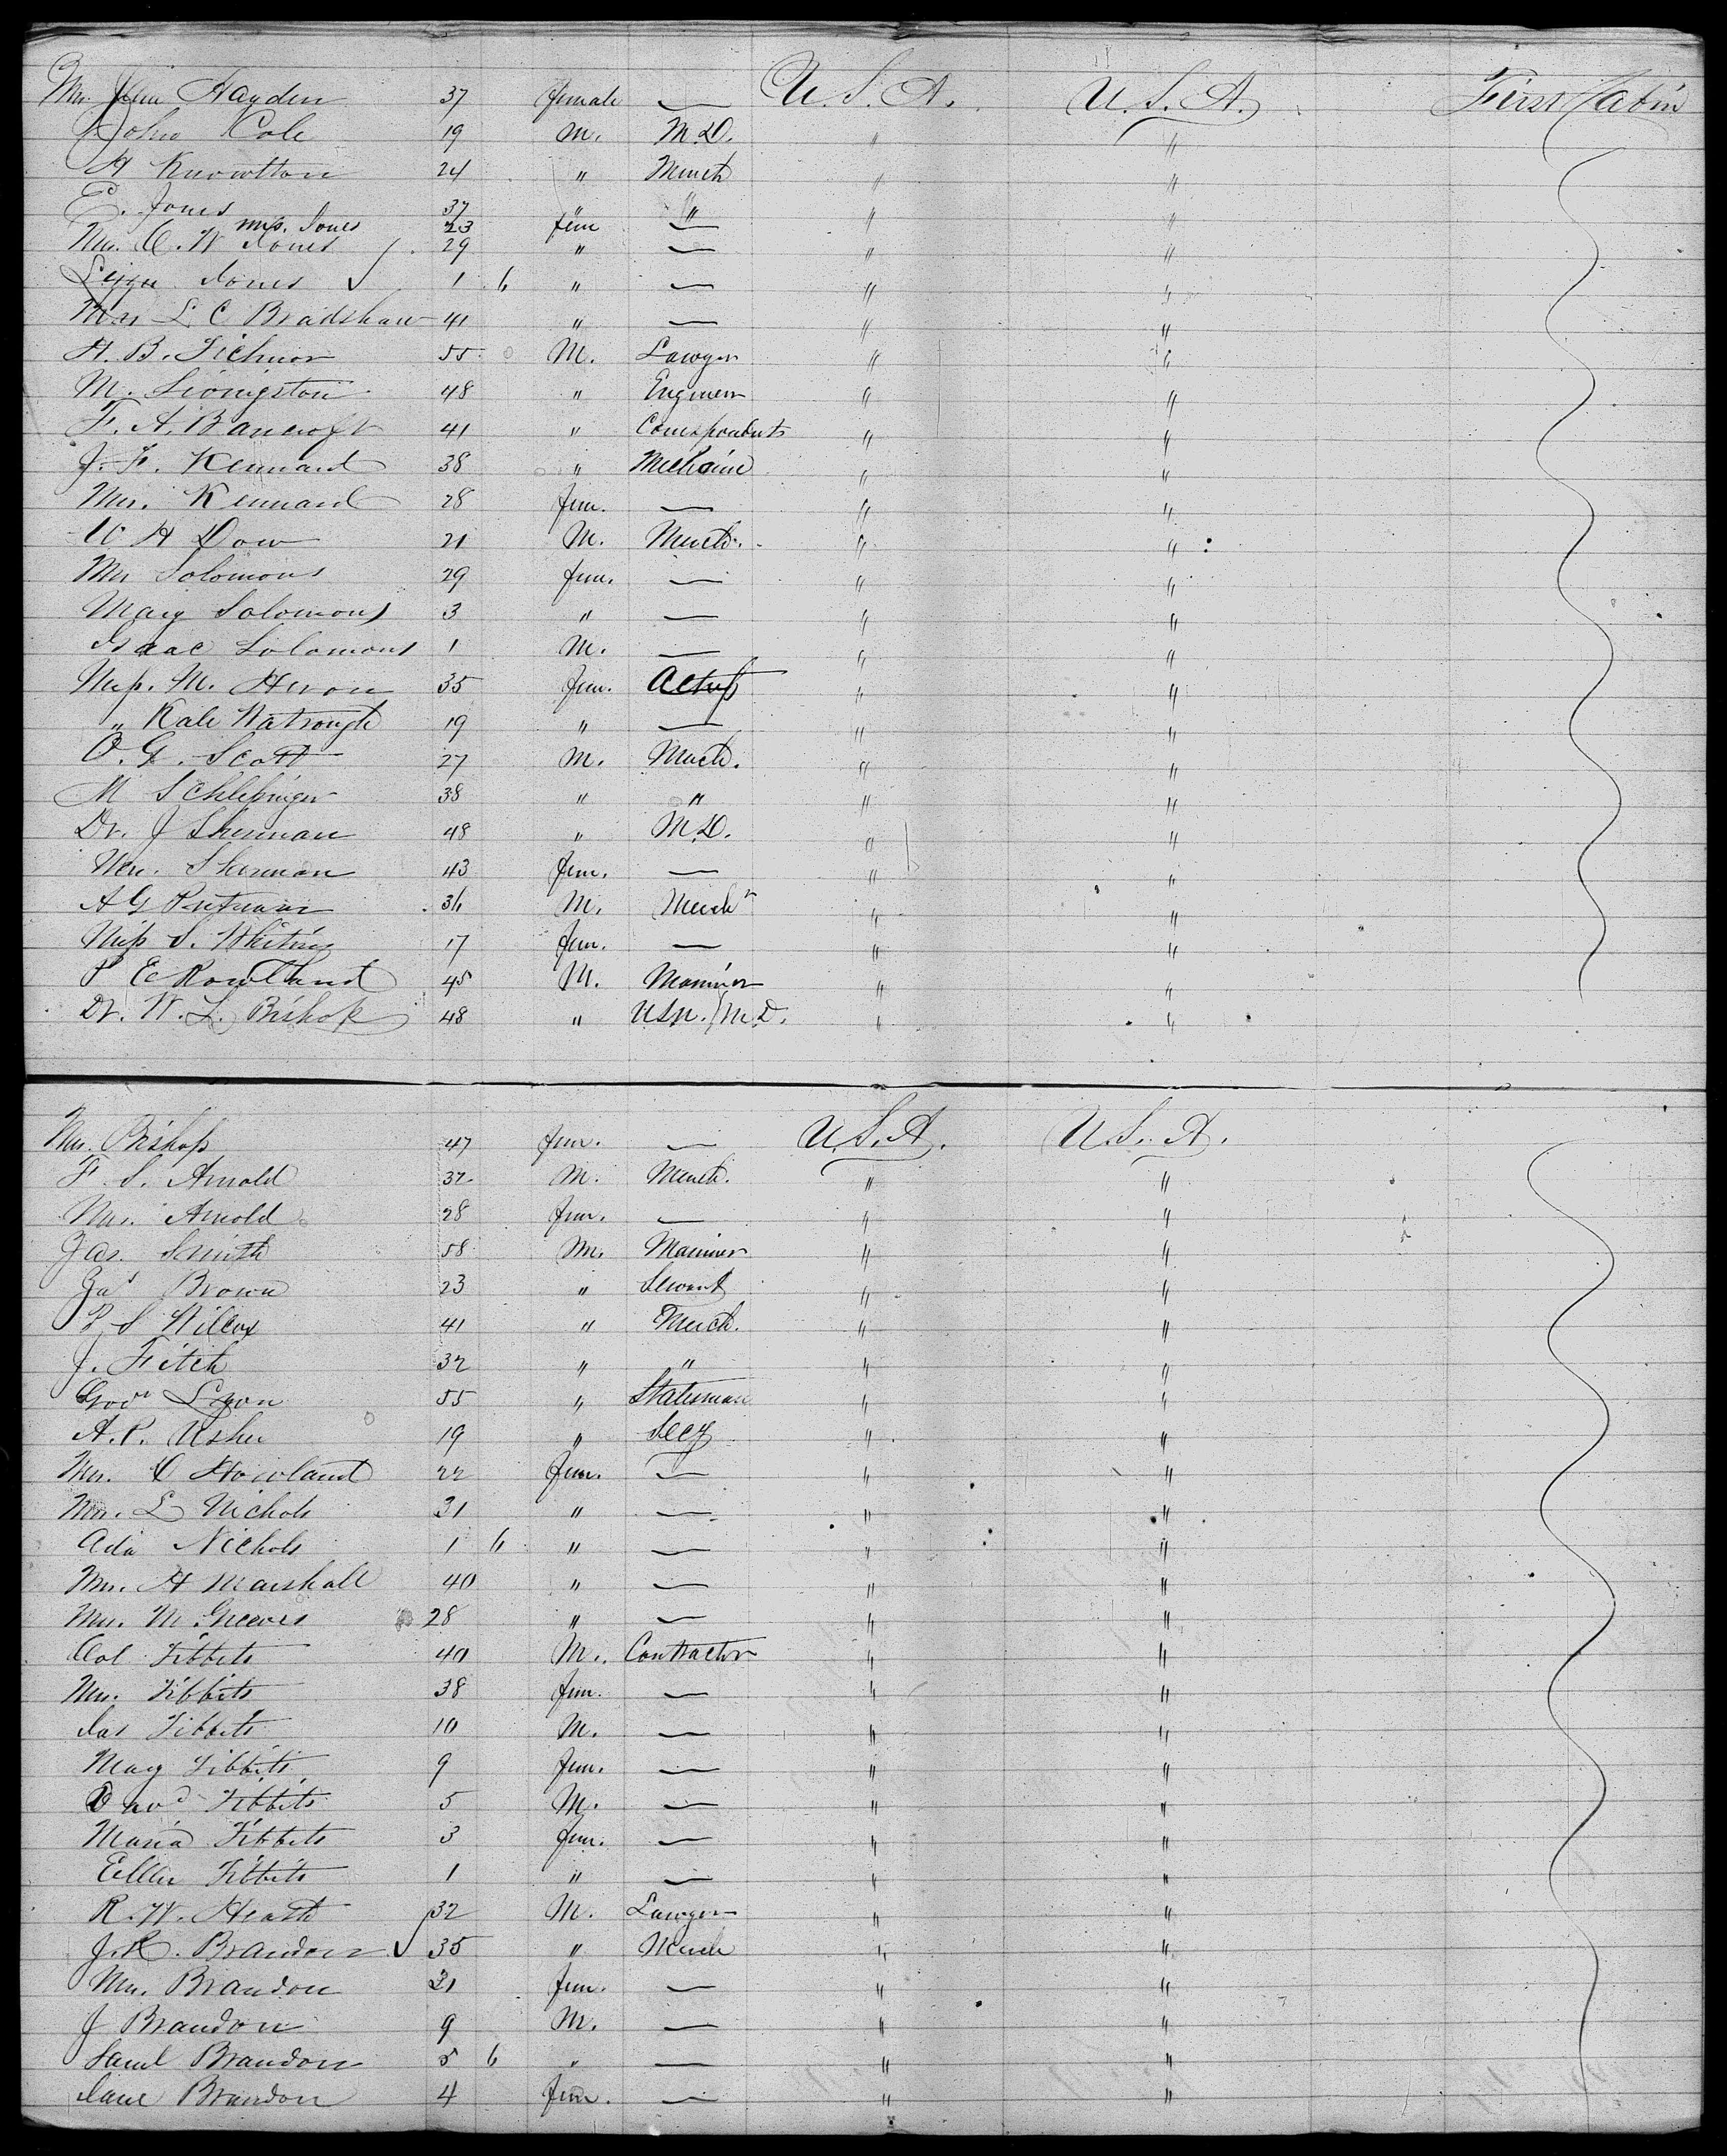 Mrs. Hayden 37 female — U.S.A. U.S.A. First Cabin
John Cole 19 M. M.D. " "
A Knowlton 24 " Merch " "
E. Jones 37 " " " "
Mrs. Jones 23 fem —
Mrs. C. W Jones 29 " — " "
Jones 1 6 " — " "
Mrs L C Bradshaw 41 " — " "
H. B. Tichnor 55 M. Lawyer " "
M. Livingston 48 " Engineer " "
F. A. Bancroft 41 " Correspondents " "
J. F. Kennard 38 " Mechanic " "
Mrs. Kennard 28 fem. — " "
W H Dow 21 M. Merch. " "
Mrs Solomons 29 fem. — " "
Mary Solomons 3 " — " "
Isaac Solomons 1 M. — " "
Miss. M. Heron 35 fem. Actress " "
" Kate 19 " — " "
O. G. Scott 27 M. Merch. " "
M Schlesinger 38 " " " "
Dr. J Sherman 48 " M.D. " "
Mrs. Sherman 43 fem. — " "
A G Putnam 36 M. Merch " "
Miss S. Whiting 17 fem. — " "
P E Rowland 45 M. Mariner " "
Dr. W. L. Bishop 48 " USN. M.D. " "
Mrs. Bishop 47 fem. — U.S.A. U.S.A.
F. S. Arnold 32 M. Merch. " "
Mrs. Arnold 28 fem. — " "
Jas. Smith 58 M. Mariner " "
Jas Brown 23 " Servant " "
P S Wilcox 41 " Merch. " "
J. Fitch 32 " " " "
Govr Lyon 55 " Statesman " "
A. P. Usher 19 " Secy " "
Mrs. C Howland 22 fem. — " "
Mrs. L Nichols 31 " — " "
Ada Nichols 1 6 " — " "
Mrs. H Marshall 40 " — " "
Mrs. M Greeves 28 " — " "
Col Tibbits 40 M. Contractor " "
Mrs. Tibbits 38 fem. — " "
Jas Tibbits 10 M. — " "
Mary Tibbits 9 fem. — " "
Davd Tibbits 5 M. — " "
Maria Tibbits 3 fem. — " "
Ellen Tibbits 1 " — " "
R. W. Heath 32 M. Lawyer " "
J. R. Brandon 35 " Merch " "
Mrs. Brandon 31 fem. — " "
J Brandon 9 M. — " "
Saml Brandon 5 6 " — " "
Jane Brandon 4 fem. — " "